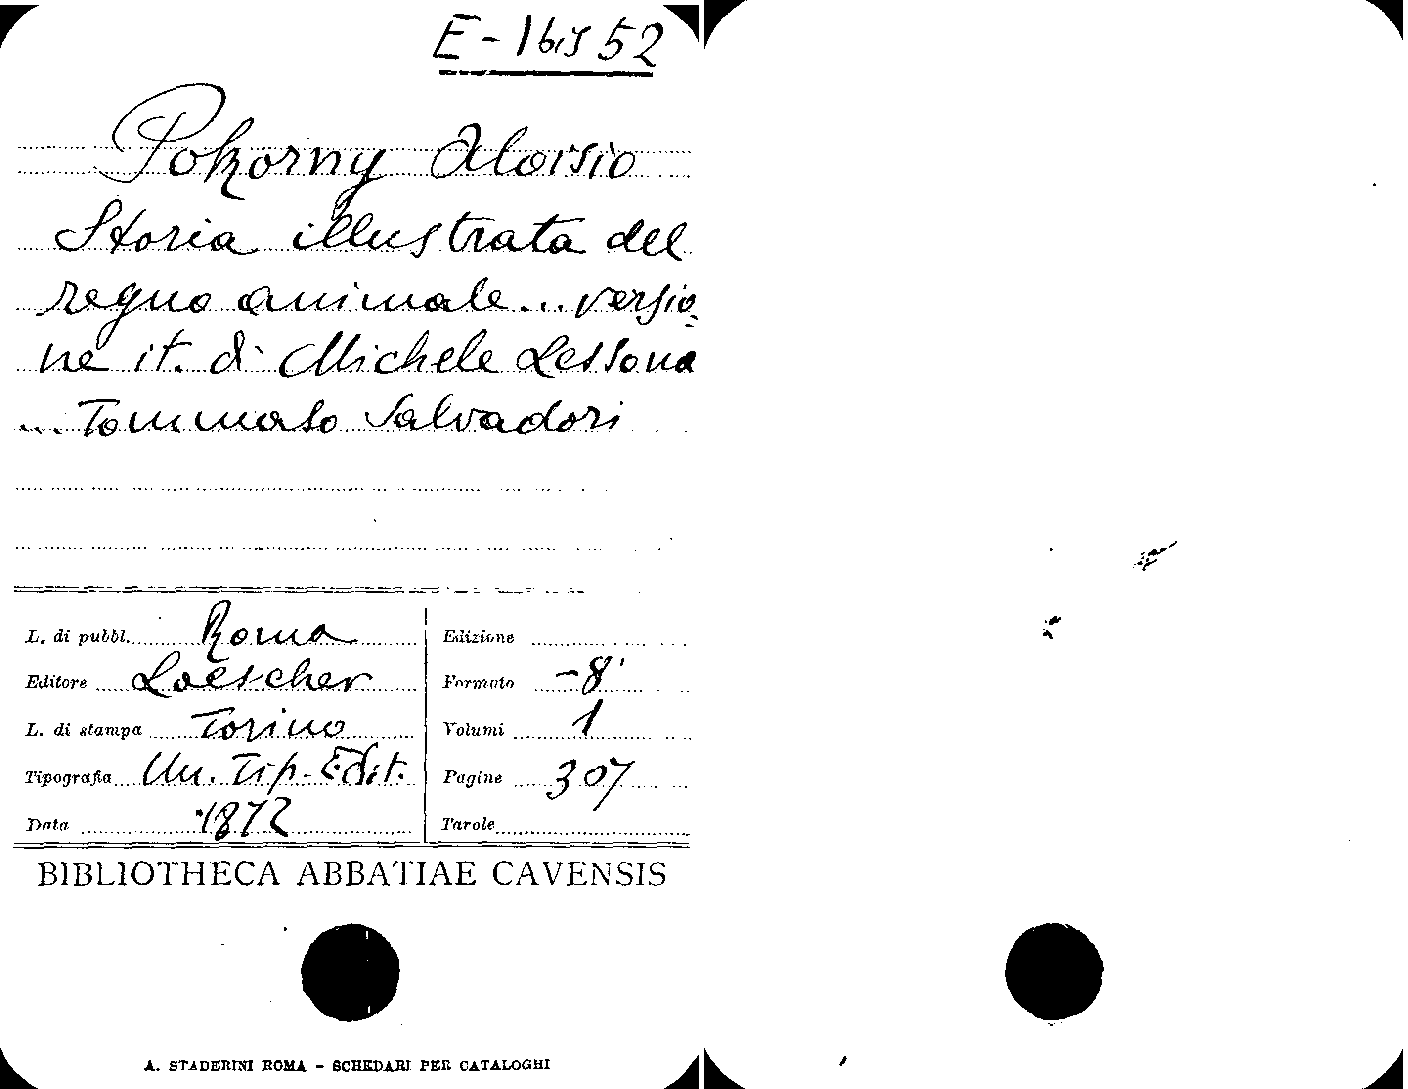 E-16is 52
Pokorny Aloisio
Storia illustrata del
regno animale... versio
ne it. di Michele Lessona
... Tommaso Salvadori
L. di pubbl. Roma
Editore Loescher
L. di stampa Torino
Tipografia Un. Tip. Edit.
Data 1872
Edizione
Formato -8°
Volumi 1
Pagine 307
Tavole
BIBLIOTHECA ABBATIAE CAVENSIS
A. STADERINI ROMA - SCHEDARI PER CATALOGHI